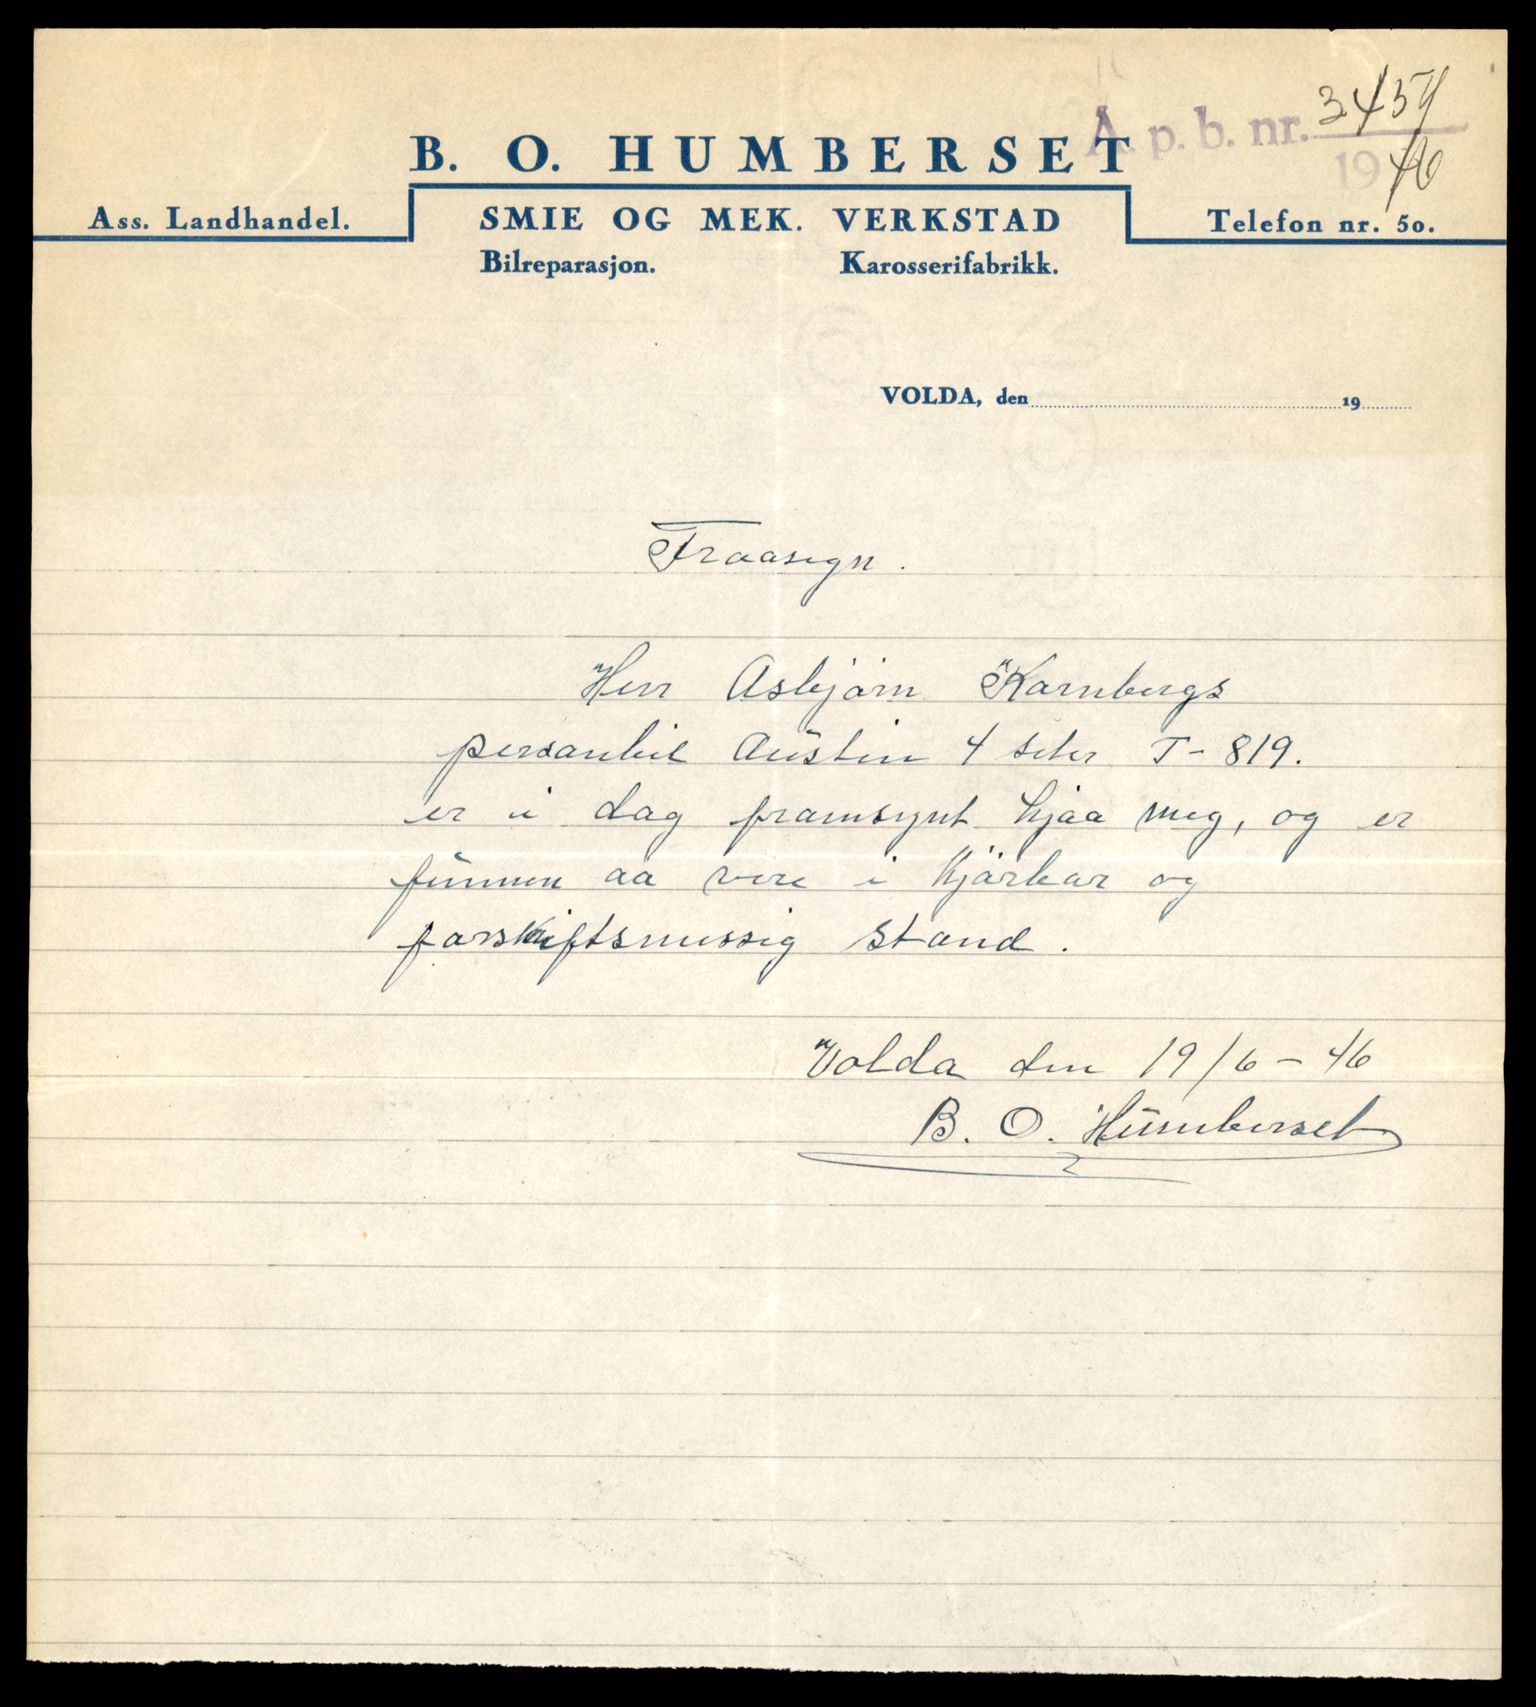 A p. b. nr. 3457
1946
B. O. HUMBERSET
Ass. Landhandel.
SMIE OG MEK. VERKSTAD
Telefon nr. 50.
Bilreparasjon. Karosserifabrikk.
VOLDA, den 19
Fraasegn.
Herr Asbjörn Kornbergs
personbil Austin 4 seter T-819.
er i dag framsynt hjaa meg, og er
funnen aa vere i kjörbar og
forskriftsmessig stand.
Volda den 19/6-46
B. O. Humberset